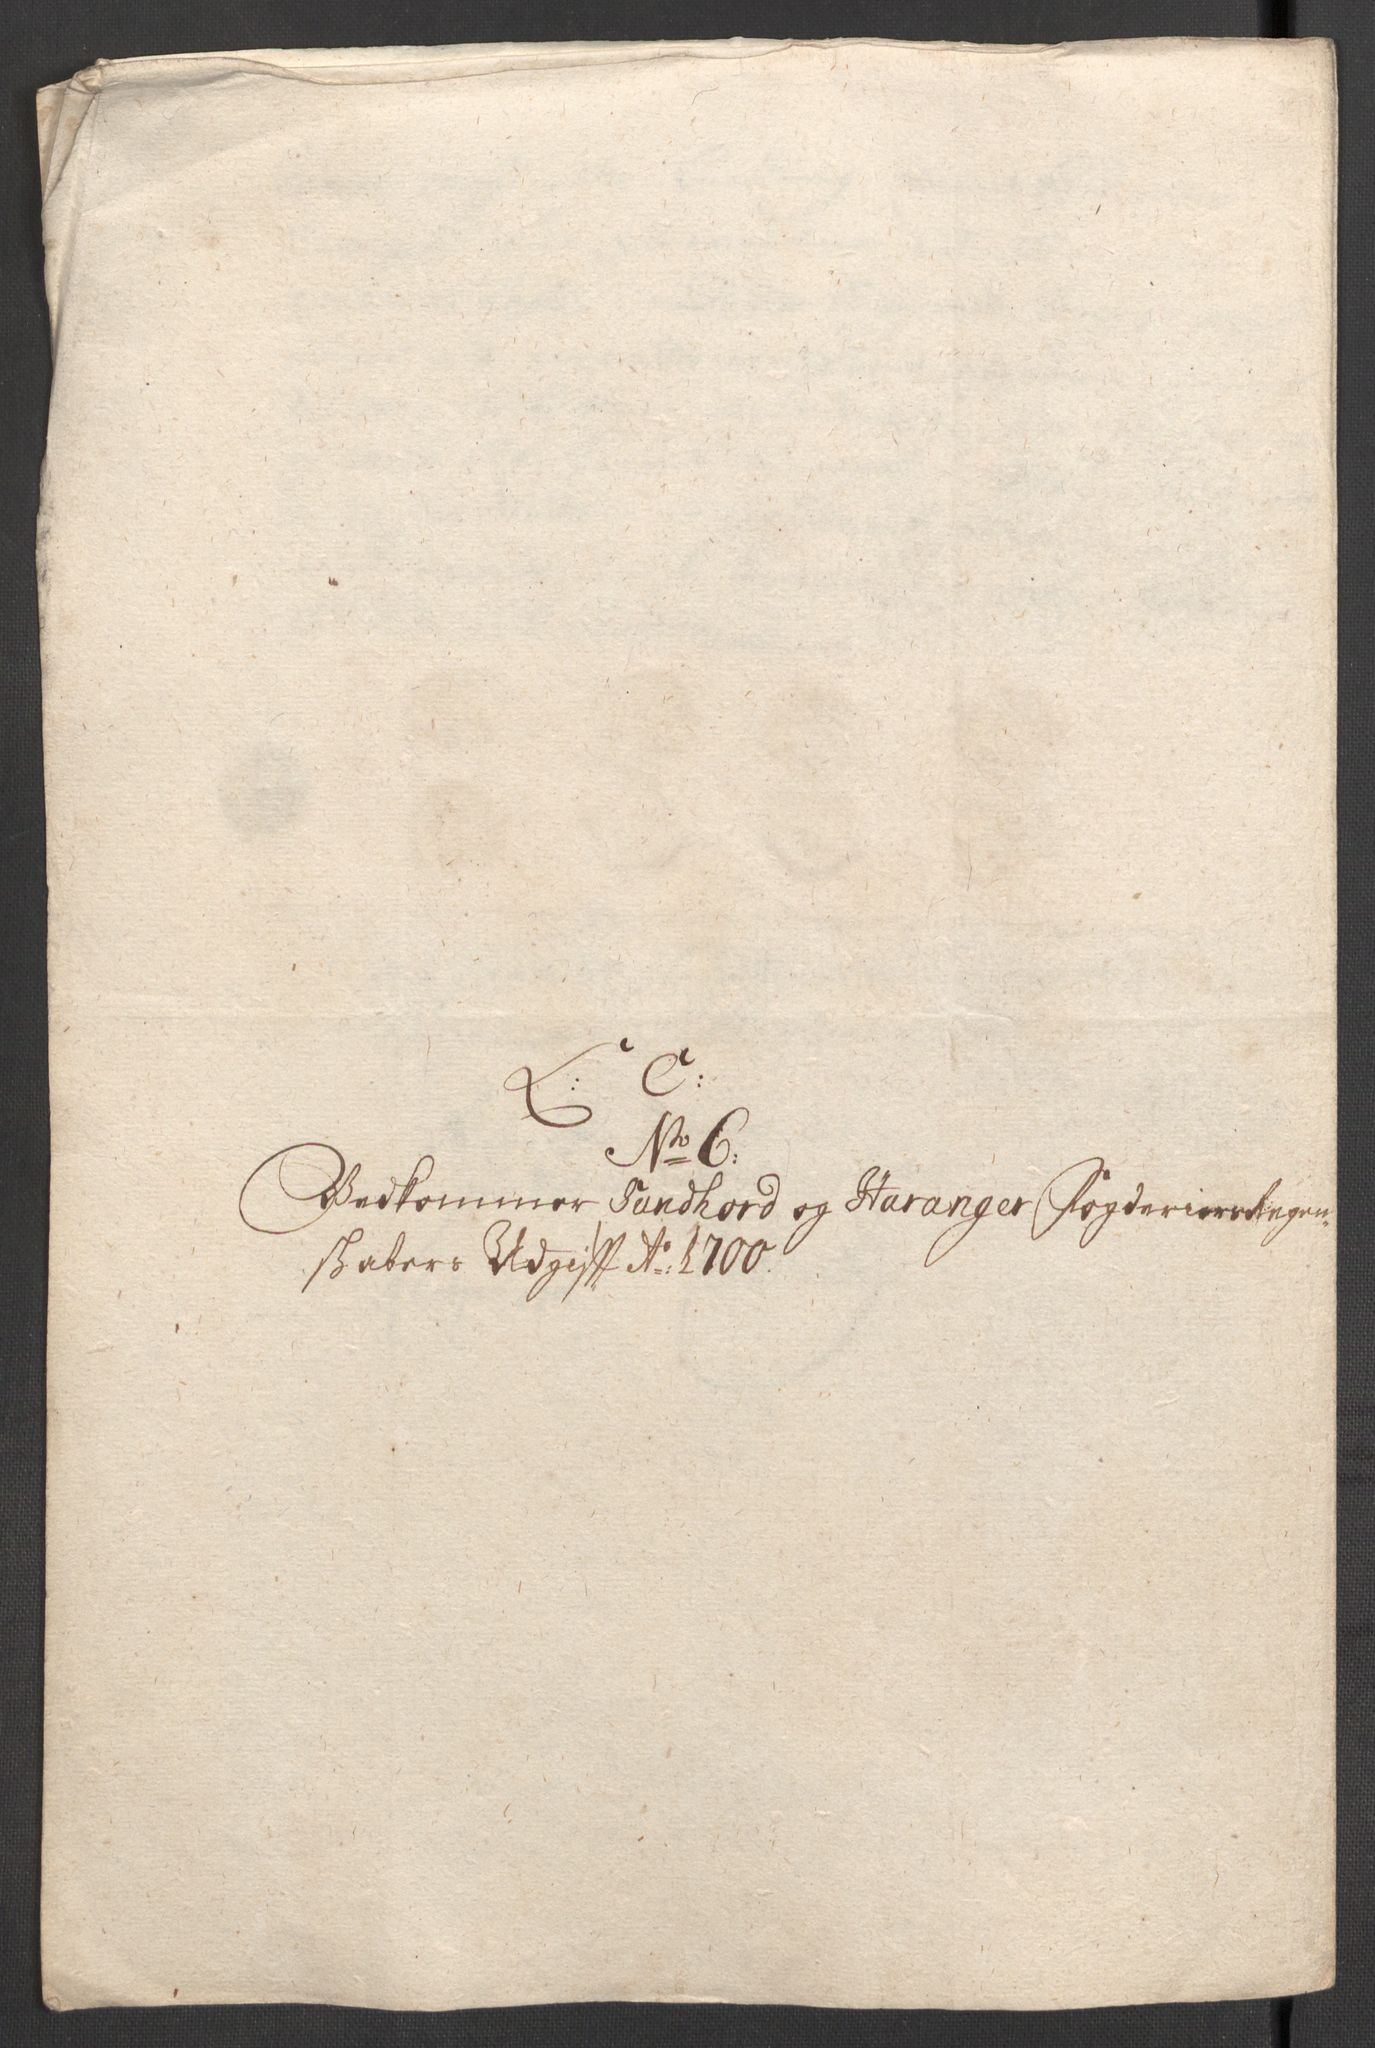 L: C:
No 6:
Vedkommer Sundhord og Haranger Fogderiers Regen-
skabers Udgifft Ao: 1700.